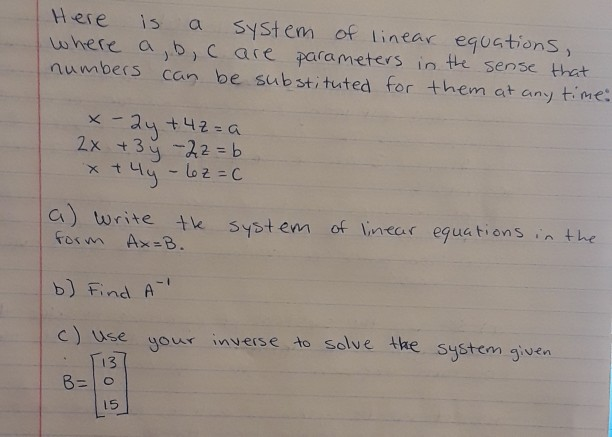 Here is a system of linear equations,
where a, b, c are parameters in the sense that
numbers can be substituted for them at any time:
x - 2y + 4z = a
2x + 3y - 2z = b
x + 4y - 6z = c
a) Write the system of linear equations in the
form Ax=B.
b) Find A⁻¹
c) Use your inverse to solve the system given
B = [13
0
15]